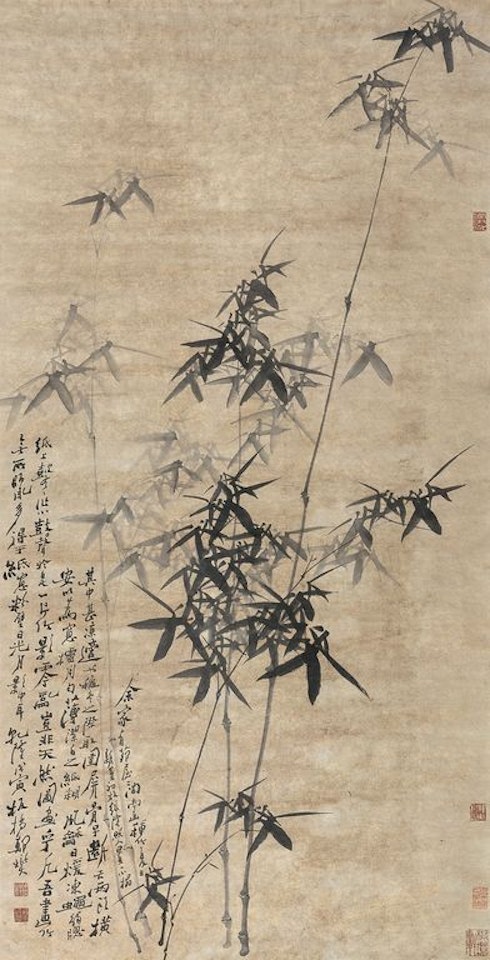 余家有茅屋二間南面種竹夏日
新篁初放綠陰照人置一小榻
其中甚涼適也秋冬之際取圍屏骨子斷去兩頭橫
安以為窗櫺用勻薄潔白之紙糊風和日暖凍蠅觸窗
紙上鼕々作鼓聲於是一片竹影零亂豈非天然圖畫乎凡吾畫竹
無所師承多得于紙窗粉壁日光月影中耳 乾隆戊寅板橋鄭燮